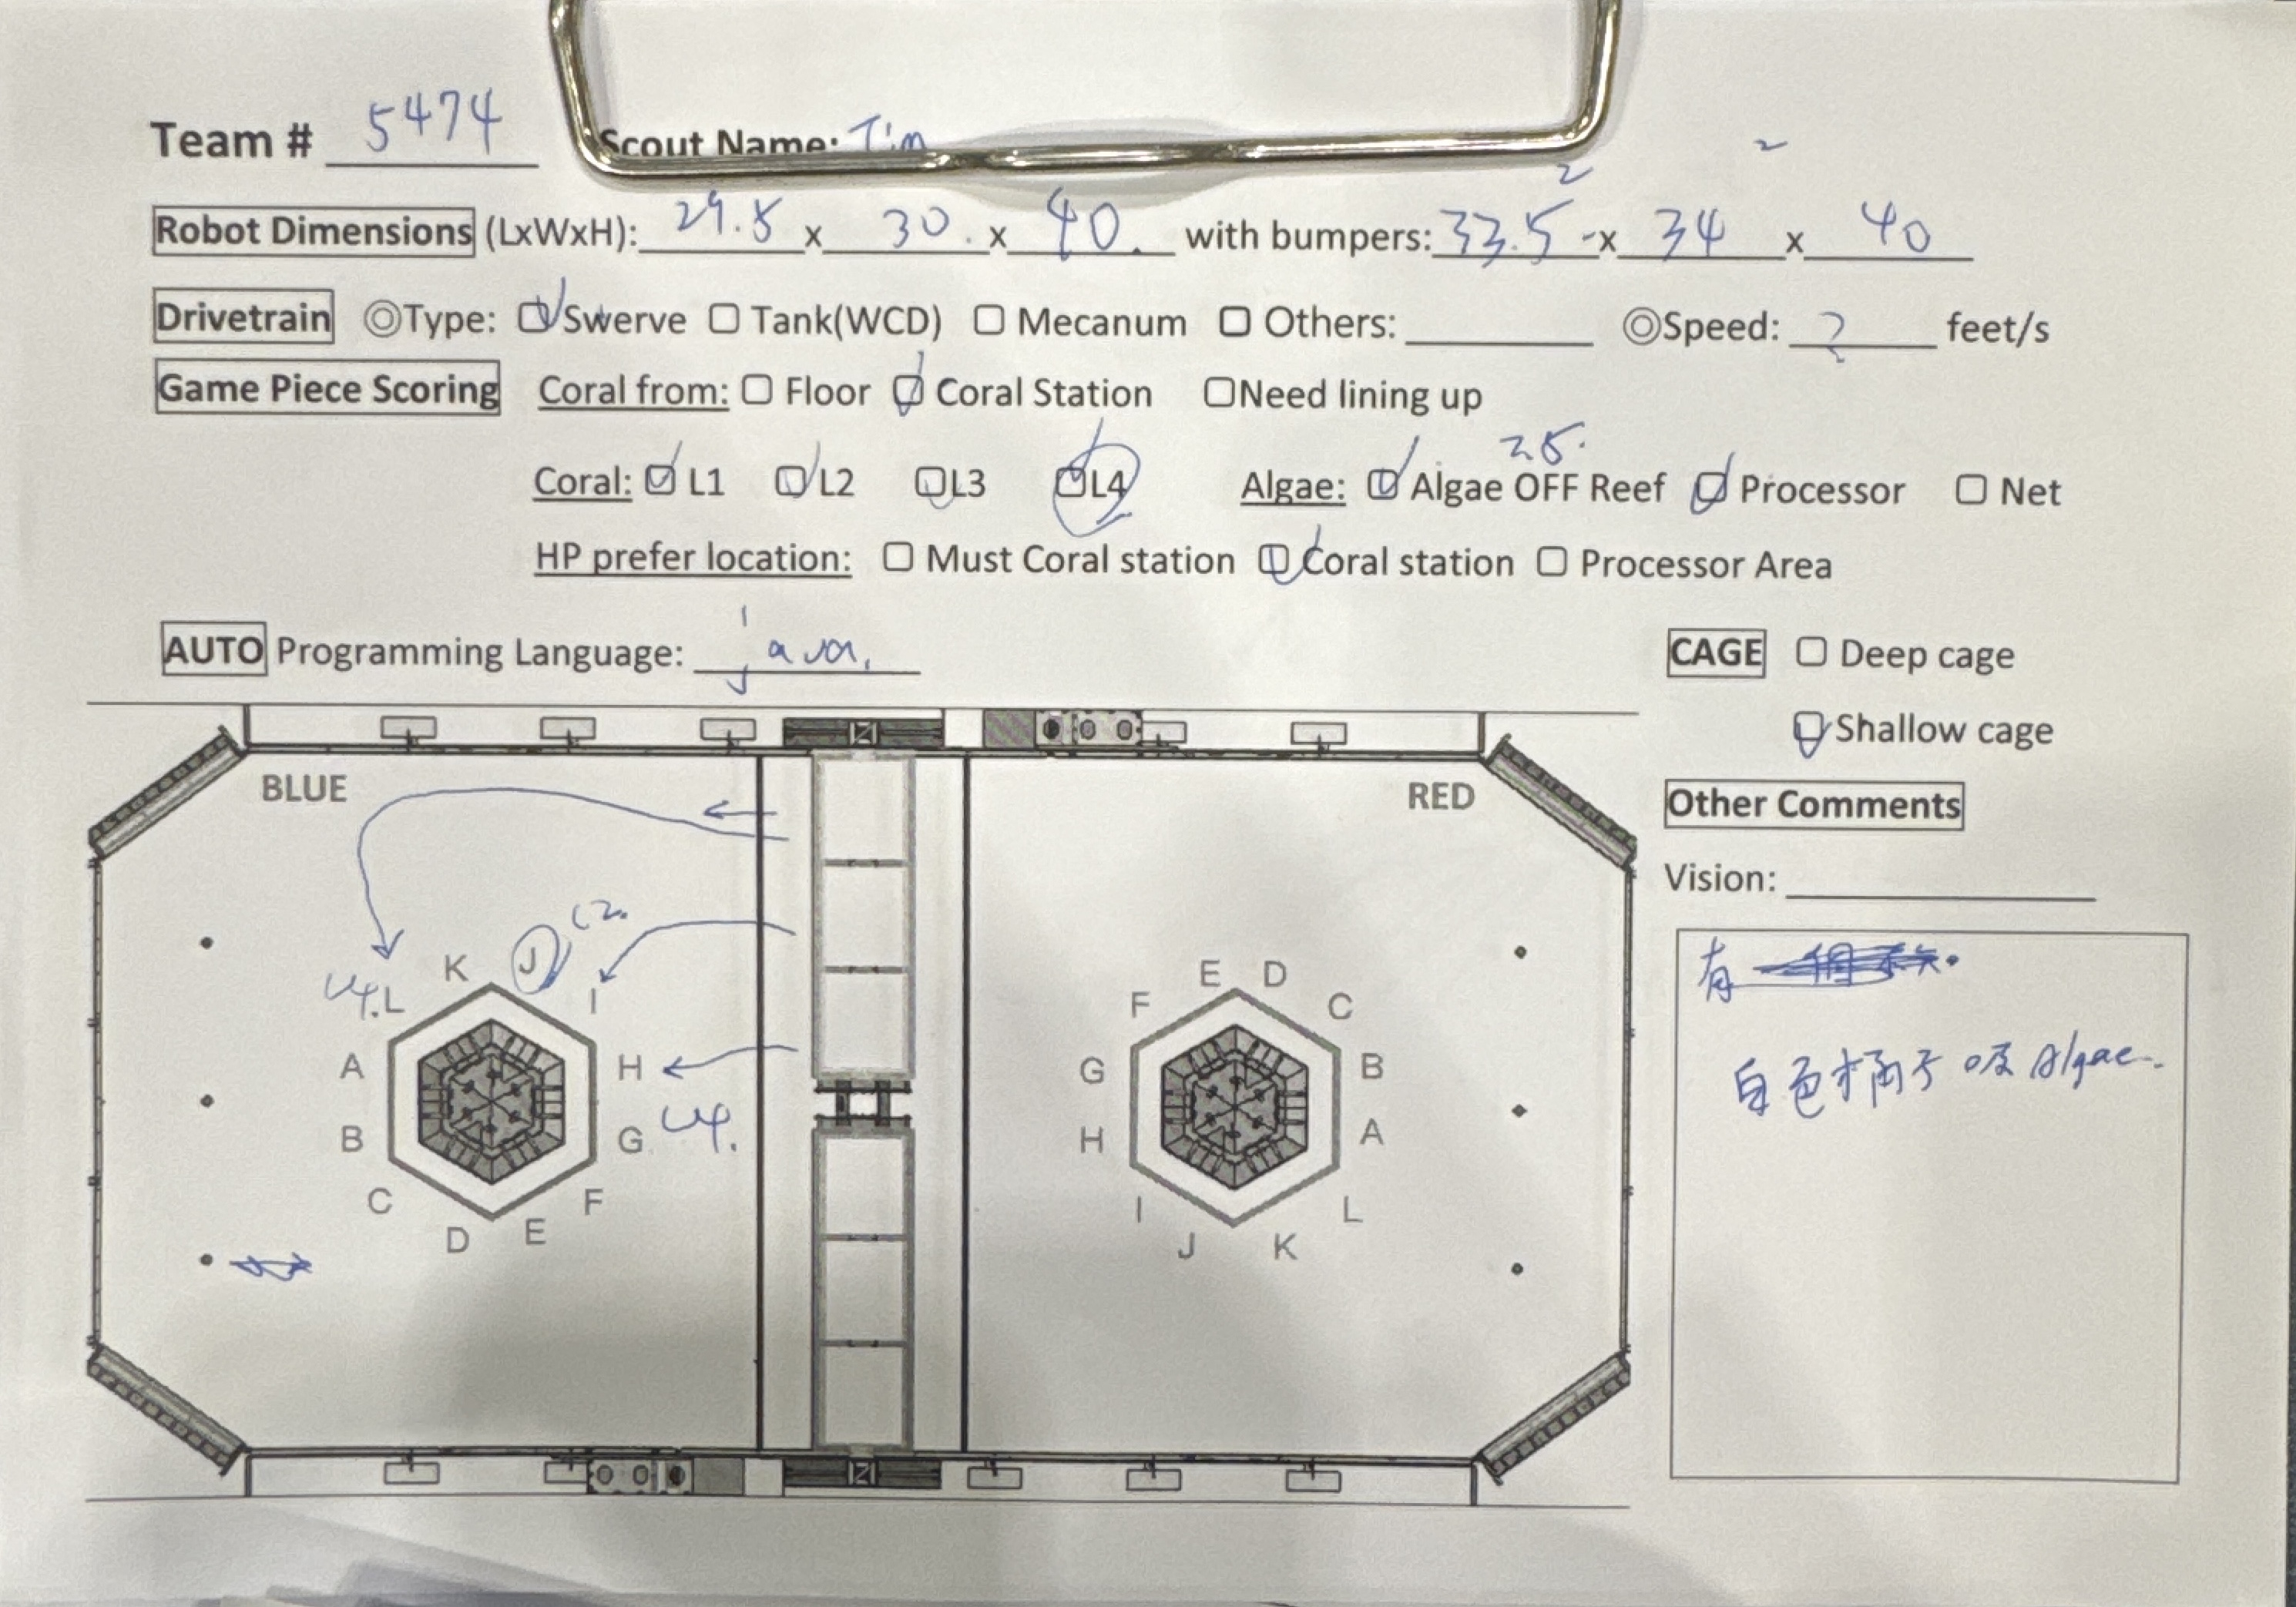 Team # 5474 Scout Name: Tim
2
2
Robot Dimensions (LxWxH): 29.5 x 30. x 40. with bumpers: 33.5 x 34 x 40
Drivetrain ◎Type: ☑ Swerve ☐ Tank(WCD) ☐ Mecanum ☐ Others: ______ ◎Speed: ? feet/s
Game Piece Scoring Coral from: ☐ Floor ☑ Coral Station ☐ Need lining up
25.
Coral: ☑ L1 ☑ L2 ☑ L3 ☑ L4 Algae: ☑ Algae OFF Reef ☑ Processor ☐ Net
HP prefer location: ☐ Must Coral station ☑ Coral station ☐ Processor Area
AUTO Programming Language: java.
CAGE ☐ Deep cage
☑ Shallow cage
BLUE
RED
Other Comments
Vision: ______
有
白色桶子吸 Algae.
L2.
K J I
L4. L
A H
B G L4.
C F
D E
E D
F C
G B
H A
I L
J K